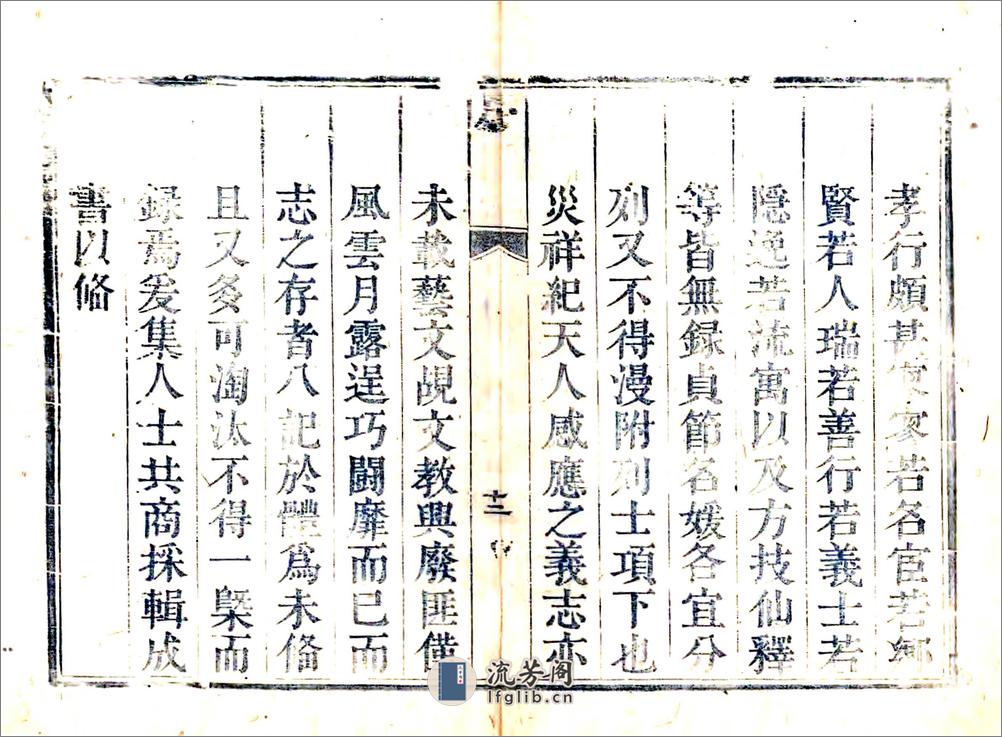 孝行頗甚寥寥若名宦若鄉
賢若人瑞若善行若義士若
隱逸若流寓以及方技仙釋
等皆無録貞節名媛各宜分
列又不得漫附列士項下也
災祥紀天人感應之義志亦
十二
未載藝文覘文教興廢匪僅
風雲月露逞巧鬪靡而已而
志之存者八記於體爲未俻
且又多可淘汰不得一槩而
録焉爰集人士共商採輯成
書以俻
流芳阁
lfglib.cn